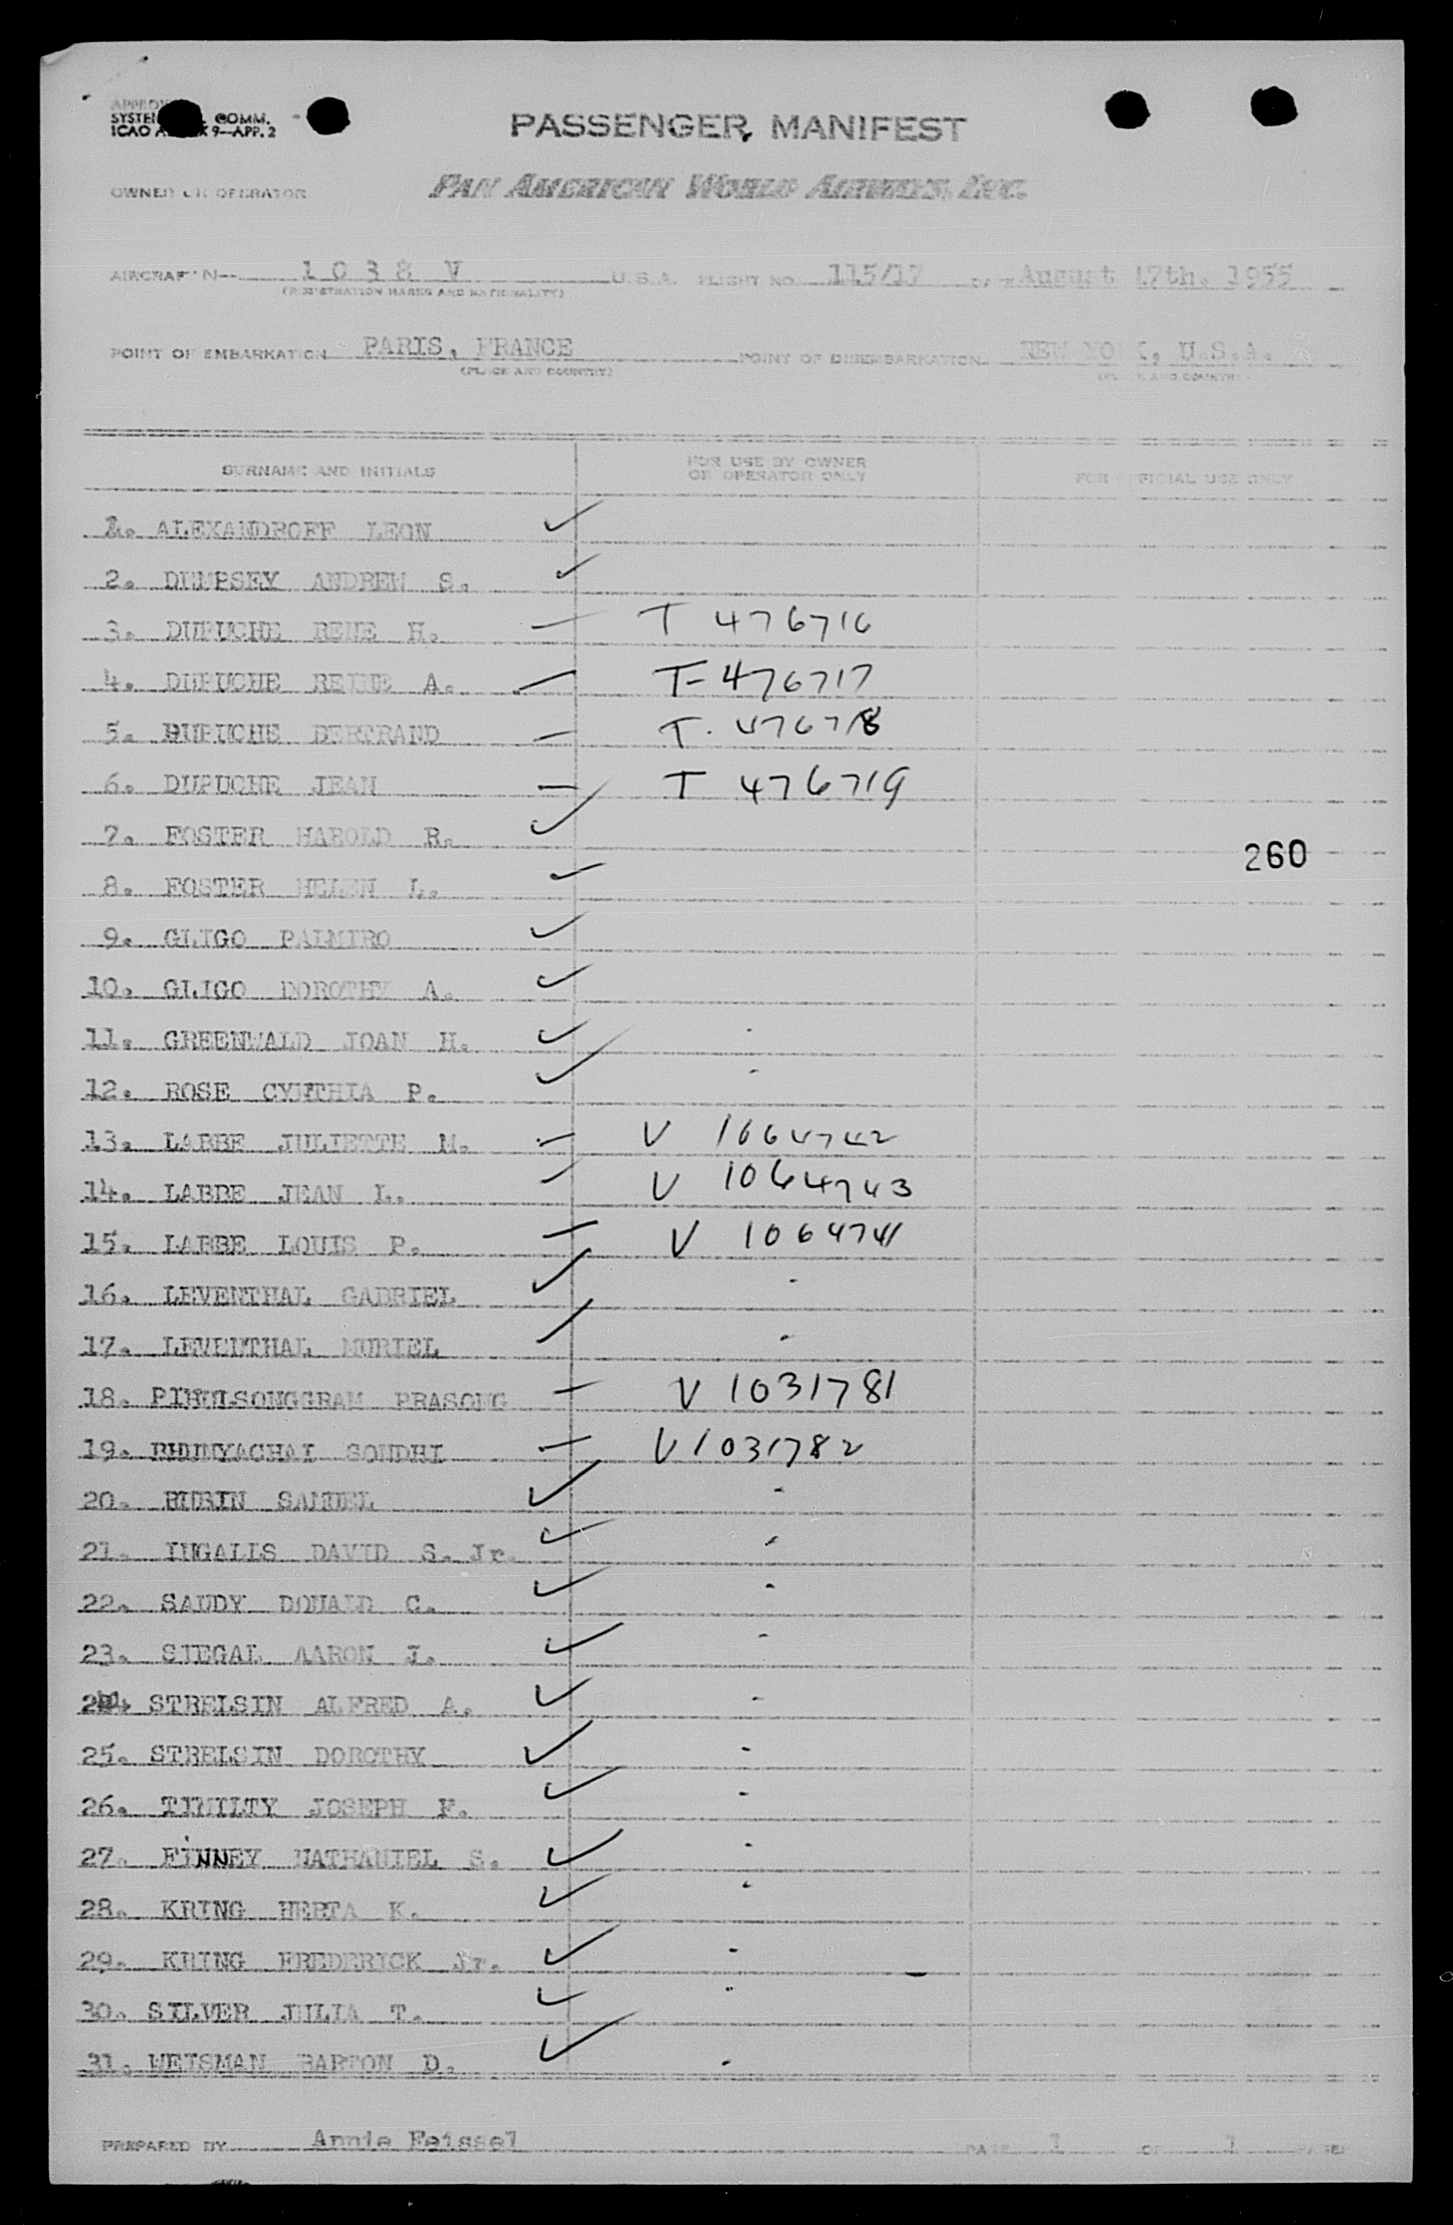 APPROV
SYSTEM COMM.
ICAO A X 9—APP. 2
PASSENGER MANIFEST
OWNER OR OPERATOR PAN AMERICAN WORLD AIRWAYS, INC.
AIRCRAFT N-- 1 0 3 8 V U.S.A. FLIGHT NO. 115/17 DATE August 17th. 1955
(REGISTRATION MARKS AND NATIONALITY)
POINT OF EMBARKATION PARIS, FRANCE POINT OF DISEMBARKATION NEW YORK, U.S.A.
(PLACE AND COUNTRY) (PLACE AND COUNTRY)
SURNAME AND INITIALS FOR USE BY OWNER OR OPERATOR ONLY FOR OFFICIAL USE ONLY
1. ALEXANDROFF LEON ✓
2. DEMPSEY ANDREW S. ✓
3. DUPUCHE RENE H. — T 476716
4. DUPUCHE REINE A. — T-476717
5. DUPUCHE BERTRAND — T. 476718
6. DUPUCHE JEAN — T 476719
7. FOSTER HAROLD R. ✓
260
8. FOSTER HELEN L. ✓
9. GLIGO PALMIRO ✓
10. GLIGO DOROTHY A. ✓
11. GREENWALD JOAN H. ✓
12. ROSE CYNTHIA P. ✓
13. LABBE JULIETTE M. — V 1064742
14. LABBE JEAN L. — V 1064743
15. LABBE LOUIS P. — V 1064741
16. LEVENTHAL GABRIEL ✓
17. LEVENTHAL MURIEL ✓
18. PIBULSONGGRAM PRASONG — V 1031781
19. BHUNYACHAI SONDHI — V1031782
20. RUBIN SAMUEL ✓
21. INGALLS DAVID S. Jr. ✓
22. SAUDY DONALD C. ✓
23. SIEGAL AARON J. ✓
24. STRELSIN ALFRED A. ✓
25. STRELSIN DOROTHY ✓
26. TIMILTY JOSEPH F. ✓
27. FINNEY NATHANIEL S. ✓
28. KRING HERTA K. ✓
29. KRING FREDERICK Jr. ✓
30. SILVER JULIA T. ✓
31. WEISMAN BARTON D. ✓
PREPARED BY Annie Feissel PAGE 1 OF 1 PAGES